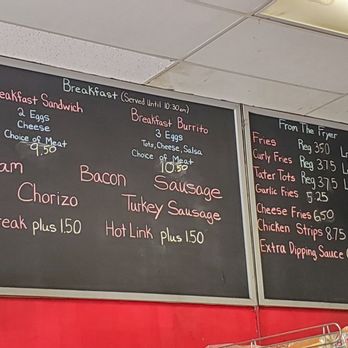 Breakfast (Served Until 10:30am)
eakfast Sandwich
2 Eggs
Cheese
Choice of Meat
9.50
Breakfast Burrito
3 Eggs
Tots, Cheese, Salsa
Choice of Meat
10.50
am
Bacon
Sausage
Chorizo
Turkey Sausage
eak plus 1.50
Hot Link plus 1.50
From The Fryer
Fries Reg 3.50 L
Curly Fries Reg 3.75 L
Tater Tots Reg 3.75 L
Garlic Fries 5.25
Cheese Fries 6.50
Chicken Strips 8.75
Extra Dipping Sauce